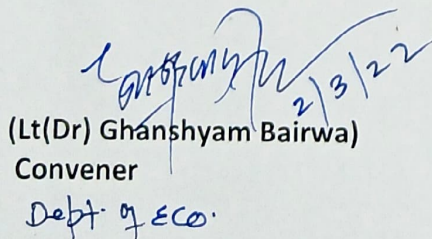 2/3/22
(Lt(Dr) Ghanshyam Bairwa)
Convener
Dept. of ECO.